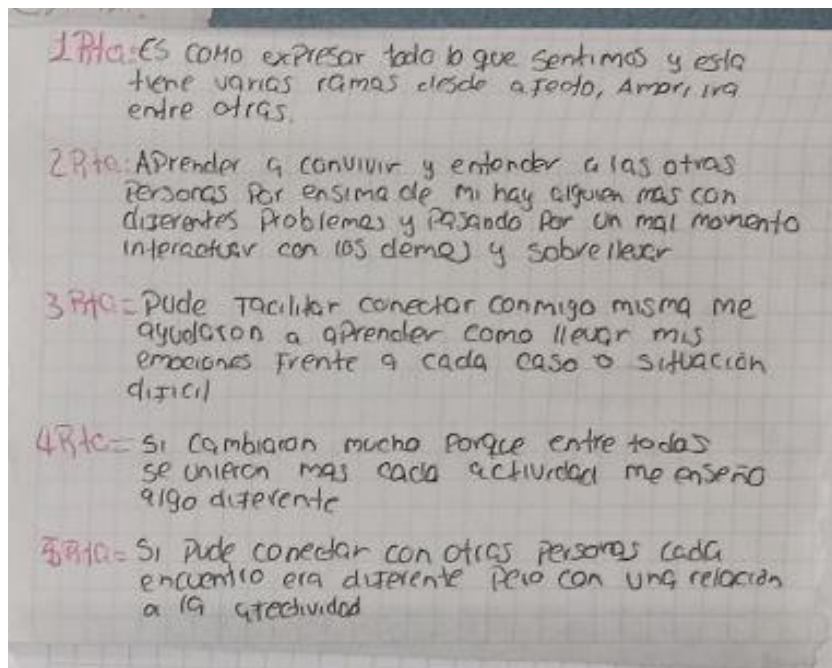 1 Rta: Es como expresar todo lo que sentimos y esta
tiene varias ramas desde afecto, Amor, ira
entre otras.
2 Rta: Aprender a convivir y entender a las otras
personas por ensima de mi hay alguien mas con
diferentes problemas y pasando por un mal momento
interactuar con los demas y sobrellevar
3 Rta = Pude facilitar conectar conmigo misma me
ayudaron a aprender como llevar mis
emociones frente a cada caso o situación
dificil
4 Rta = Si cambiaron mucho porqe entre todas
se unieron mas cada actividad me enseño
algo diferente
5 Rta = Si pude conectar con otras personas cada
encuentro era diferente pero con una relación
a la afectividad